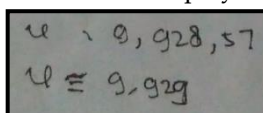 u , 9,928,57
u ≅ 9.929